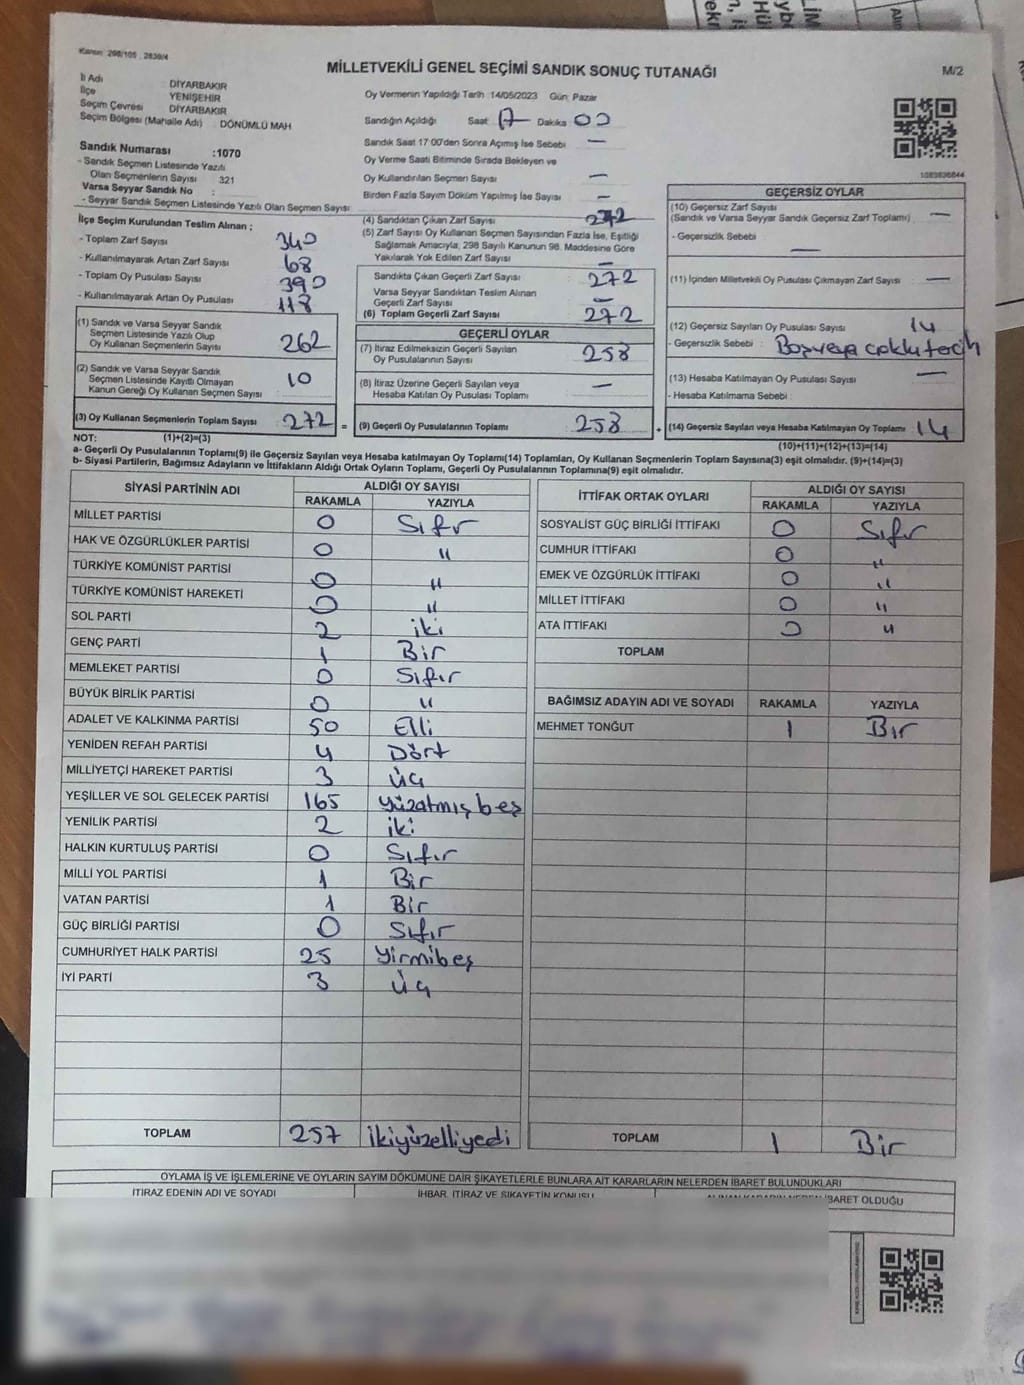 Kanun: 298/105, 2839/4
MİLLETVEKİLİ GENEL SEÇİMİ SANDIK SONUÇ TUTANAĞI
M/2
İl Adı : DİYARBAKIR
İlçe : YENİŞEHİR
Seçim Çevresi : DİYARBAKIR
Seçim Bölgesi (Mahalle Adı) : DÖNÜMLÜ MAH
Oy Vermenin Yapıldığı Tarih :14/05/2023 Gün: Pazar
Sandığın Açıldığı Saat 17 Dakika 00
Sandık Saat 17:00'den Sonra Açılmış İse Sebebi : —
Oy Verme Saati Bitiminde Sırada Bekleyen ve
Oy Kullandırılan Seçmen Sayısı : —
Birden Fazla Sayım Döküm Yapılmış İse Sayısı : —
Sandık Numarası :1070
- Sandık Seçmen Listesinde Yazılı
Olan Seçmenlerin Sayısı : 321
Varsa Seyyar Sandık No :
- Seyyar Sandık Seçmen Listesinde Yazılı Olan Seçmen Sayısı:
İlçe Seçim Kurulundan Teslim Alınan ;
- Toplam Zarf Sayısı : 340
- Kullanılmayarak Artan Zarf Sayısı : 68
- Toplam Oy Pusulası Sayısı : 390
- Kullanılmayarak Artan Oy Pusulası : 118
(1) Sandık ve Varsa Seyyar Sandık
Seçmen Listesinde Yazılı Olup
Oy Kullanan Seçmenlerin Sayısı : 262
(2) Sandık ve Varsa Seyyar Sandık
Seçmen Listesinde Kayıtlı Olmayan
Kanun Gereği Oy Kullanan Seçmen Sayısı : 10
(3) Oy Kullanan Seçmenlerin Toplam Sayısı : 272 =
(4) Sandıktan Çıkan Zarf Sayısı : 272
(5) Zarf Sayısı Oy Kullanan Seçmen Sayısından Fazla İse, Eşitliği
Sağlamak Amacıyla, 298 Sayılı Kanunun 98. Maddesine Göre
Yakılarak Yok Edilen Zarf Sayısı : —
Sandıkta Çıkan Geçerli Zarf Sayısı : 272
Varsa Seyyar Sandıktan Teslim Alınan
Geçerli Zarf Sayısı : —
(6) Toplam Geçerli Zarf Sayısı : 272
GEÇERLİ OYLAR
(7) İtiraz Edilmeksizin Geçerli Sayılan
Oy Pusulalarının Sayısı : 258
(8) İtiraz Üzerine Geçerli Sayılan veya
Hesaba Katılan Oy Pusulası Toplamı : —
(9) Geçerli Oy Pusulalarının Toplamı : 258 +
1083836844
GEÇERSİZ OYLAR
(10) Geçersiz Zarf Sayısı
(Sandık ve Varsa Seyyar Sandık Geçersiz Zarf Toplamı) : —
- Geçersizlik Sebebi : —
(11) İçinden Milletvekili Oy Pusulası Çıkmayan Zarf Sayısı : —
(12) Geçersiz Sayılan Oy Pusulası Sayısı : 14
- Geçersizlik Sebebi : Boş veya çoklu tercih
(13) Hesaba Katılmayan Oy Pusulası Sayısı : —
- Hesaba Katılmama Sebebi :
(14) Geçersiz Sayılan veya Hesaba Katılmayan Oy Toplamı : 14
NOT: (1)+(2)=(3)
(10)+(11)+(12)+(13)=(14)
a- Geçerli Oy Pusulalarının Toplamı(9) ile Geçersiz Sayılan veya Hesaba katılmayan Oy Toplamı(14) Toplamları, Oy Kullanan Seçmenlerin Toplam Sayısına(3) eşit olmalıdır. (9)+(14)=(3)
b- Siyasi Partilerin, Bağımsız Adayların ve İttifakların Aldığı Ortak Oyların Toplamı, Geçerli Oy Pusulalarının Toplamına(9) eşit olmalıdır.
SİYASİ PARTİNİN ADI ALDIĞI OY SAYISI
RAKAMLA YAZIYLA
MİLLET PARTİSİ 0 Sıfır
HAK VE ÖZGÜRLÜKLER PARTİSİ 0 "
TÜRKİYE KOMÜNİST PARTİSİ 0 "
TÜRKİYE KOMÜNİST HAREKETİ 0 "
SOL PARTİ 2 iki
GENÇ PARTİ 1 Bir
MEMLEKET PARTİSİ 0 Sıfır
BÜYÜK BİRLİK PARTİSİ 0 "
ADALET VE KALKINMA PARTİSİ 50 Elli
YENİDEN REFAH PARTİSİ 4 Dört
MİLLİYETÇİ HAREKET PARTİSİ 3 üç
YEŞİLLER VE SOL GELECEK PARTİSİ 165 yüzatmışbeş
YENİLİK PARTİSİ 2 iki
HALKIN KURTULUŞ PARTİSİ 0 Sıfır
MİLLİ YOL PARTİSİ 1 Bir
VATAN PARTİSİ 1 Bir
GÜÇ BİRLİĞİ PARTİSİ 0 Sıfır
CUMHURİYET HALK PARTİSİ 25 yirmibeş
İYİ PARTİ 3 üç
TOPLAM 257 ikiyüzelliyedi
İTTİFAK ORTAK OYLARI ALDIĞI OY SAYISI
RAKAMLA YAZIYLA
SOSYALİST GÜÇ BİRLİĞİ İTTİFAKI 0 Sıfır
CUMHUR İTTİFAKI 0 "
EMEK VE ÖZGÜRLÜK İTTİFAKI 0 "
MİLLET İTTİFAKI 0 "
ATA İTTİFAKI 0 "
TOPLAM
BAĞIMSIZ ADAYIN ADI VE SOYADI RAKAMLA YAZIYLA
MEHMET TONĞUT 1 Bir
TOPLAM 1 Bir
OYLAMA İŞ VE İŞLEMLERİNE VE OYLARIN SAYIM DÖKÜMÜNE DAİR ŞİKAYETLERLE BUNLARA AİT KARARLARIN NELERDEN İBARET BULUNDUKLARI
İTİRAZ EDENİN ADI VE SOYADI
İHBAR, İTİRAZ VE ŞİKAYETİN KONUSU
ALINAN KARARIN NEDEN İBARET OLDUĞU